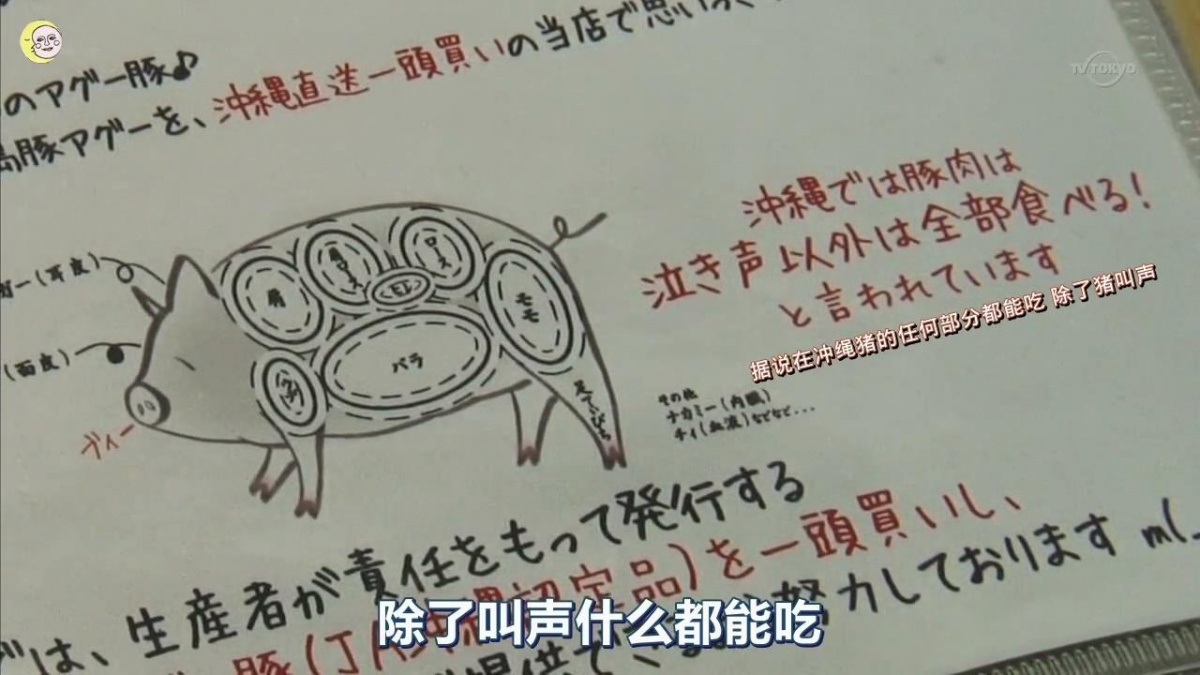 TV TOKYO
のアグー豚♪
島豚アグーを、沖縄直送一頭買いの当店で思い
沖縄では豚肉は
泣き声以外は全部食べる!
と言われています
据说在冲绳猪的任何部分都能吃 除了猪叫声
ガー(耳皮)
(面皮)
肩
肩ロース
ロース
ヒレ
モモ
バラ
ウデ
足てぃびち
ブィー
その他
ナカミー(内臓)
チィ(血液)などなど...
では、生産者が責任をもって発行する
豚(JA沖縄認定品)を一頭買いし、
提供できる 努力しております m(_
除了叫声什么都能吃